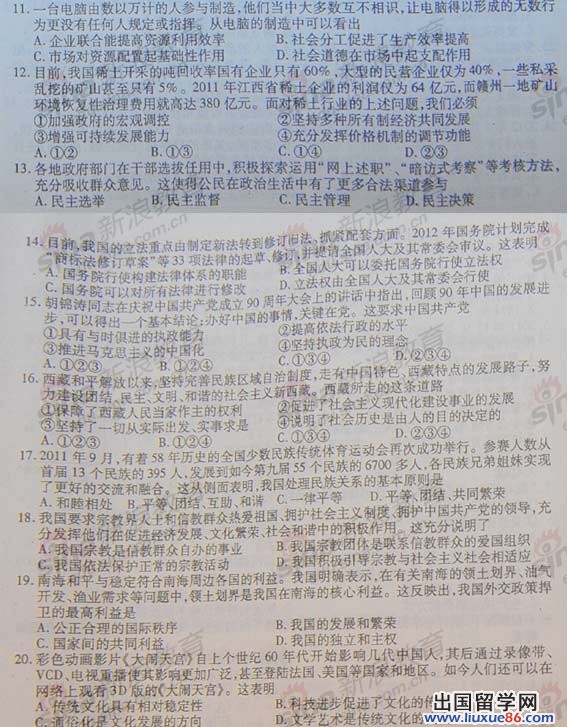 11. 一台电脑由数以万计的人参与制造,他们当中大多数互不相识,让电脑得以形成的无数行
为更没有任何人规定或指挥。从电脑的制造中可以看出
A. 企业联合能提高资源利用效率 B. 社会分工促进了生产效率提高
C. 市场对资源配置起基础性作用 D. 社会道德在市场中起支配作用
12. 目前,我国稀土开采的吨回收率国有企业只有60%,大型的民营企业仅为40%,一些私采
乱挖的矿山甚至只有5%。2011年江西省稀土企业的利润仅为64亿元,而赣州一地矿山
环境恢复性治理费用就高达380亿元。面对稀土行业的上述问题,我们必须
①加强政府的宏观调控 ②坚持多种所有制经济共同发展
③增强可持续发展能力 ④充分发挥价格机制的调节功能
A. ①② B. ①③ C. ①④ D. ②④
13. 各地政府部门在干部选拔任用中,积极探索运用“网上述职”、“暗访式考察”等考核方法,
充分吸收群众意见。这使得公民在政治生活中有了更多合法渠道参与
A. 民主选举 B. 民主监督 C. 民主管理 D. 民主决策
14. 目前,我国的立法重点由制定新法转到修订旧法、抓紧配套方面。2012年国务院计划完成
“商标法修订草案”等33项法律的起草、修订,并提请全国人大及其常委会审议。这表明
A. 国务院行使构建法律体系的职能 B. 全国人大可以委托国务院行使立法权
C. 国务院可以对所有法律进行修改 D. 立法权由全国人大及其常委会行使
15. 胡锦涛同志在庆祝中国共产党成立90周年大会上的讲话中指出,回顾90年中国的发展进
步,可以得出一个基本结论:办好中国的事情,关键在党。这要求中国共产党
①具有与时俱进的执政能力 ②提高依法行政的水平
③推进马克思主义的中国化 ④坚持执政为民的理念
A. ①②③ B. ①②④ C. ①③④ D. ②③④
16. 西藏和平解放以来,坚持完善民族区域自治制度,走有中国特色、西藏特点的发展路子,努
力建设团结、民主、文明、和谐的社会主义新西藏。西藏所走的这条道路
①保障了西藏人民当家作主的权利 ②促进了社会主义现代化建设事业的发展
③坚持了一切从实际出发、实事求是 ④符合了社会历史是由人的目的决定的
A. ①②③ B. ①②④ C. ①③④ D. ②③④
17. 2011年9月,有着58年历史的全国少数民族传统体育运动会再次成功举行。参赛人数从
首届13个民族的395人,发展到如今第九届55个民族的6700多人,各民族兄弟姐妹实现
了更好的交流和融合。这从侧面表明,我国处理民族关系的基本原则是
A. 和睦相处 B. 平等、团结、互助、和谐 C. 一律平等 D. 平等、团结、共同繁荣
18. 我国要求宗教界人士和信教群众热爱祖国、拥护社会主义制度、拥护中国共产党的领导,充
分发挥他们在促进经济发展、文化繁荣、社会和谐中的积极作用。这充分说明了
A. 我国宗教是信教群众自办的事业 B. 我国宗教团体是联系信教群众的爱国组织
C. 我国依法保护正常的宗教活动 D. 我国积极引导宗教与社会主义社会相适应
19. 南海和平与稳定符合南海周边各国的利益。我国明确表示,在有关南海的领土划界、油气
开发、渔业需求等问题中,领土划界是我国在南海的核心利益。这反映出,我国外交政策捍
卫的最高利益是
A. 公正合理的国际秩序 B. 我国的发展和繁荣
C. 国家间的共同利益 D. 我国的独立和主权
20. 彩色动画影片《大闹天宫》自上个世纪60年代开始影响几代中国人,其后通过录像带、
VCD、电视重播使其影响更加广泛,甚至登陆法国、美国等国家和地区。如今人们还可以在
网络上观看3D版的《大闹天宫》。这表明
A. 传统文化具有相对稳定性 B. 科技进步促进了文化的传
C. 通俗化是文化发展的方向 D. 文学艺术是传统文化的
新浪教育
sina
出国留学网
www.liuxue86.com